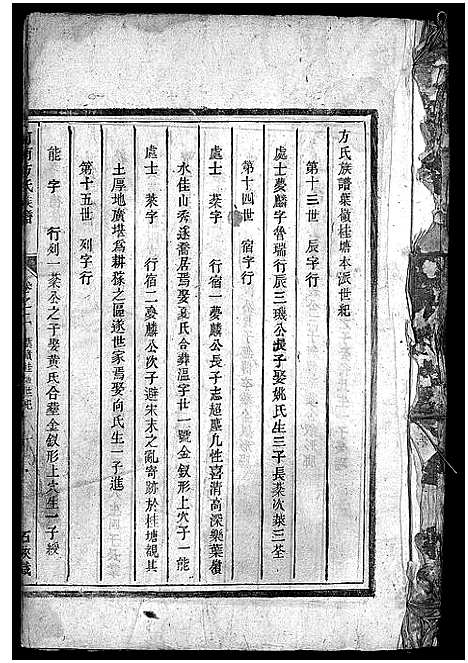 方氏族譜葉嶺桂塘本派世紀
第十三世 辰字行
處士夢麟字魯瑞行辰三璣公長子娶姚氏生三子長葉次萊三荃
第十四世 宿字行
處士 葉字 行宿一夢麟公長子志超塵几性喜清高深樂葉嶺
水佳山秀遂喬居焉娶夏氏合葬温字廿一號金釵形上穴子一能
處士 萊字 行宿二夢麟公次子避宋末之亂寄跡於桂塘觀其
土厚地廣堪為耕稼之區遂世家焉娶向氏生一子進
第十五世 列字行
能字 行列一葉公之子娶黃氏合葬金釵形上穴生一子綬
方氏族譜
卷之二